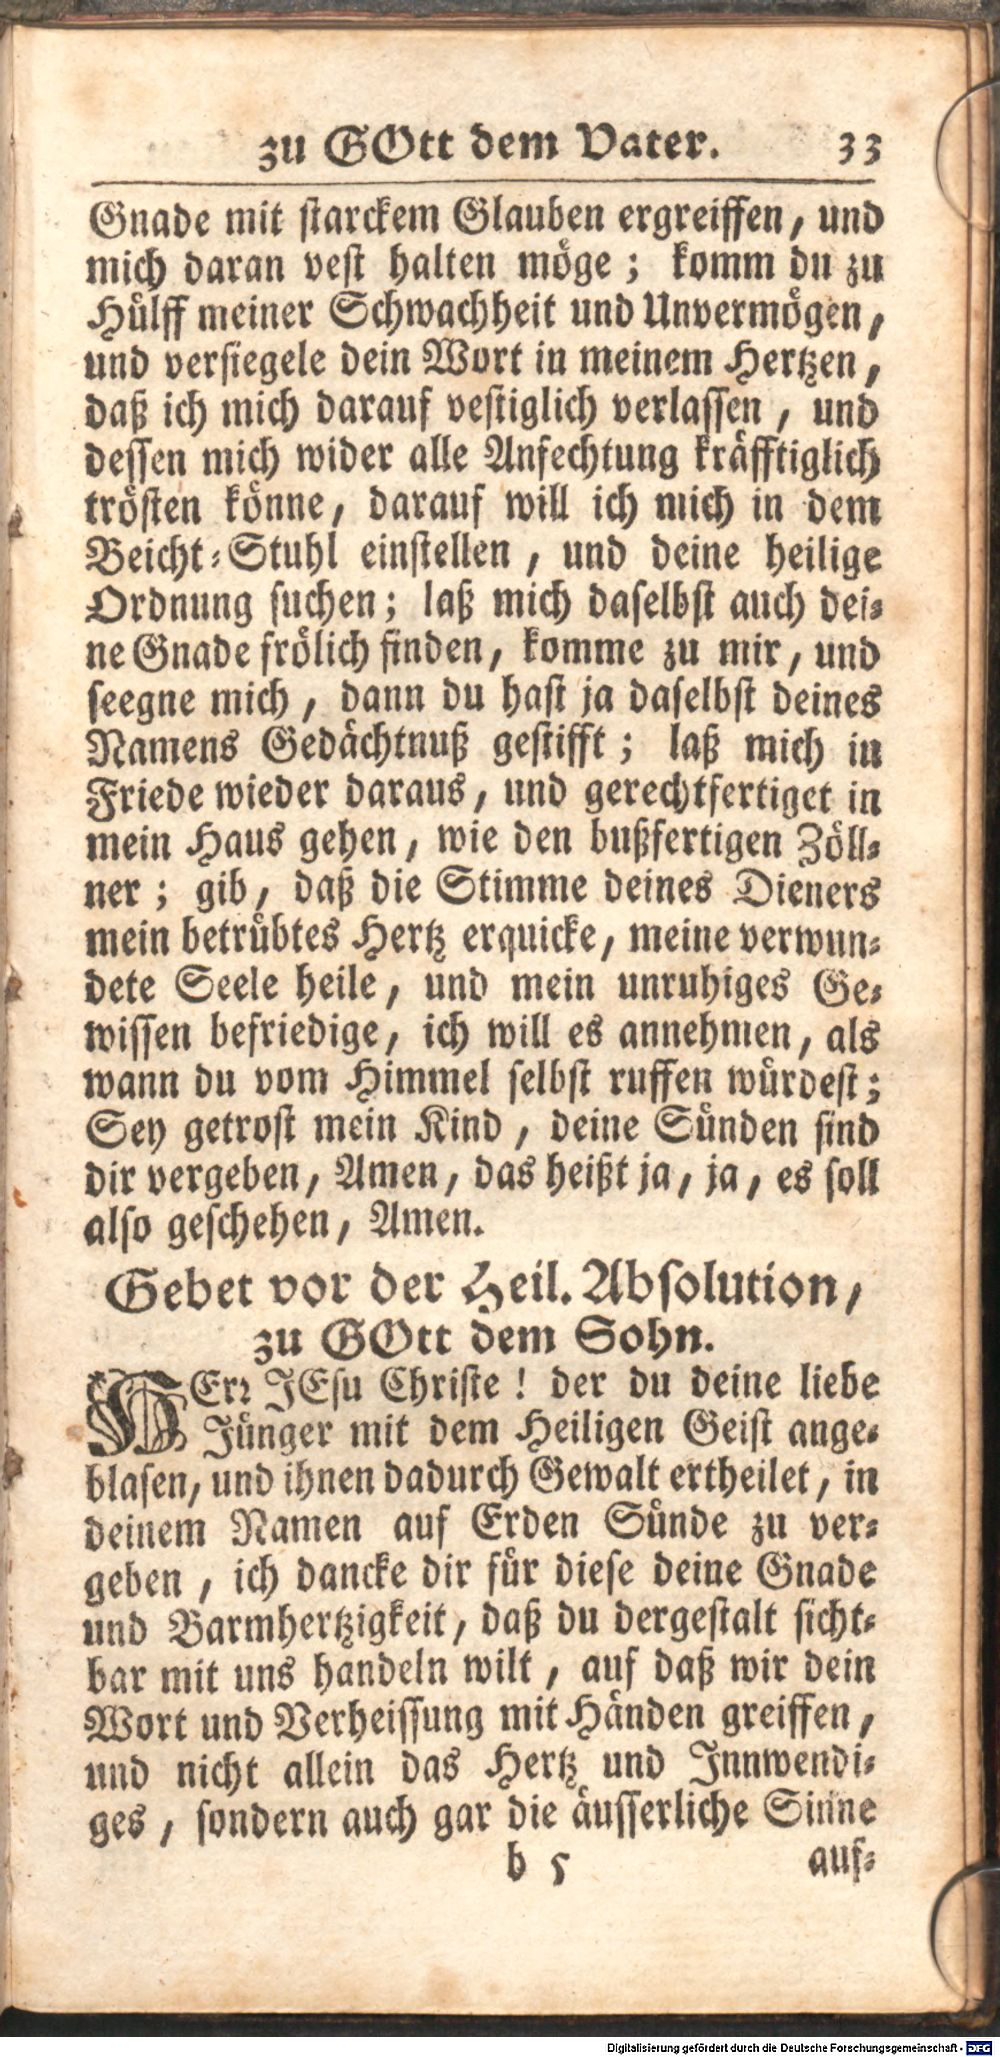 zu GOtt dem Vater. 33
Gnade mit starckem Glauben ergreiffen, und
mich daran vest halten möge; komm du zu
Hülff meiner Schwachheit und Unvermögen,
und versiegele dein Wort in meinem Hertzen,
daß ich mich darauf vestiglich verlassen, und
dessen mich wider alle Anfechtung kräfftiglich
trösten könne, darauf will ich mich in dem
Beicht-Stuhl einstellen, und deine heilige
Ordnung suchen; laß mich daselbst auch dei-
ne Gnade frölich finden, komme zu mir, und
seegne mich, dann du hast ja daselbst deines
Namens Gedächtnuß gestifft; laß mich in
Friede wieder daraus, und gerechtfertiget in
mein Haus gehen, wie den bußfertigen Zöll-
ner; gib, daß die Stimme deines Dieners
mein betrübtes Hertz erquicke, meine verwun-
dete Seele heile, und mein unruhiges Ge-
wissen befriedige, ich will es annehmen, als
wann du vom Himmel selbst ruffen würdest;
Sey getrost mein Kind, deine Sünden sind
dir vergeben, Amen, das heißt ja, ja, es soll
also geschehen, Amen.
Gebet vor der Heil. Absolution,
zu GOtt dem Sohn.
HErr JEsu Christe! der du deine liebe
Jünger mit dem Heiligen Geist ange-
blasen, und ihnen dadurch Gewalt ertheilet, in
deinem Namen auf Erden Sünde zu ver-
geben, ich dancke dir für diese deine Gnade
und Barmhertzigkeit, daß du dergestalt sicht-
bar mit uns handeln wilt, auf daß wir dein
Wort und Verheissung mit Händen greiffen,
und nicht allein das Hertz und Innwendi-
ges, sondern auch gar die äusserliche Sinne
b 5 auf-
Digitalisierung gefördert durch die Deutsche Forschungsgemeinschaft - DFG